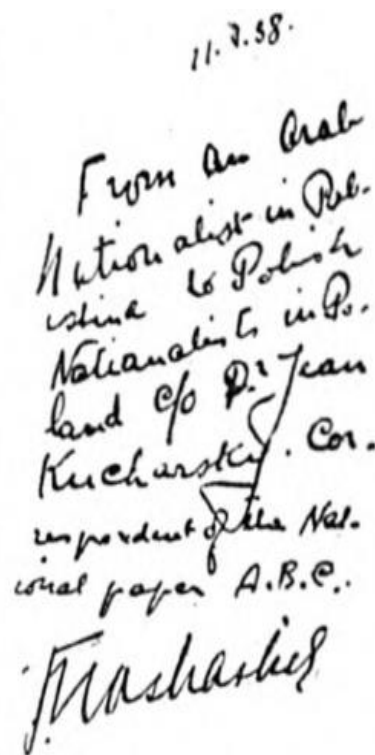 11.7.38.
From an Arab
Nationalist in Pal-
istine to Polish
Nationalists in Po-
land c/o Dr Jean
Kucharsky. Cor-
respondent of the Nat-
ional paper A.B.C.
Nashashibi